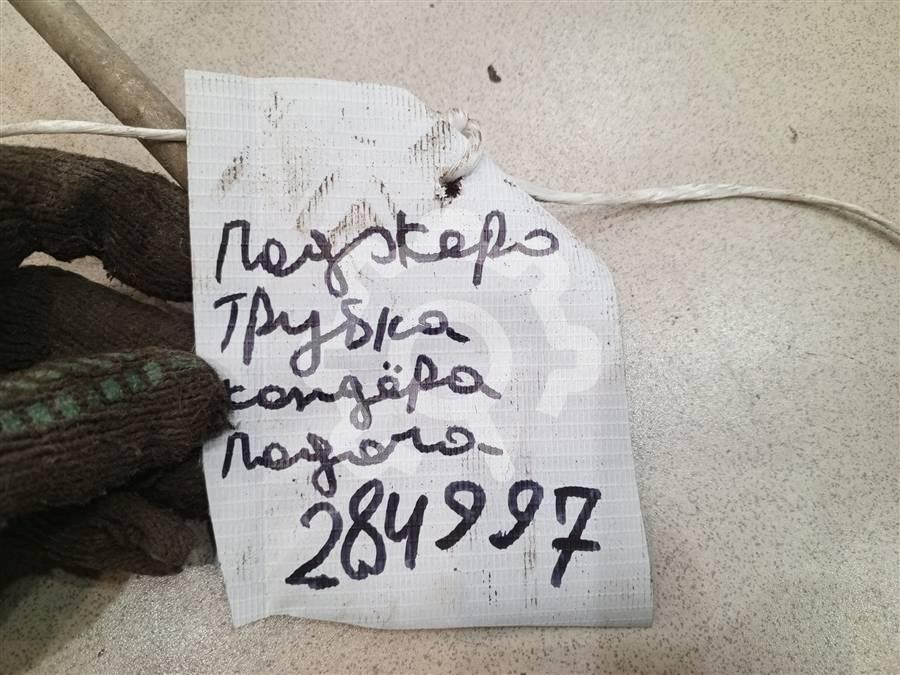 Паджеро
Трубка
кондёра
284997